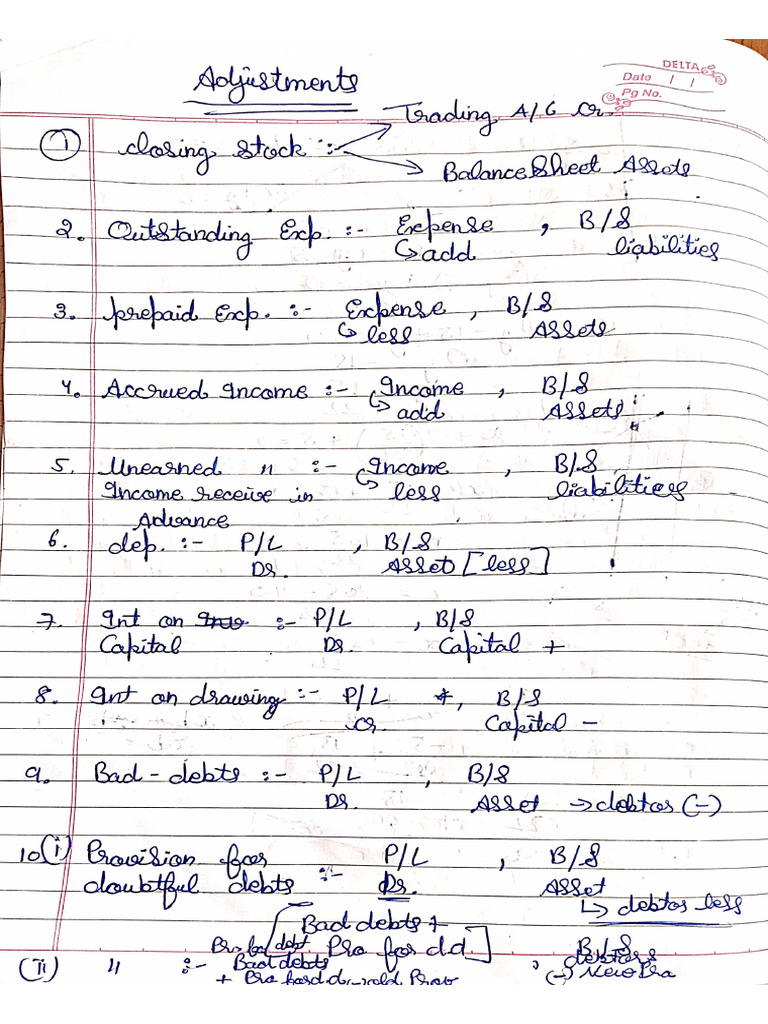 Adjustments
DELTA
Date / /
Pg No.
Trading A/C Cr.
1 Closing Stock :-
Balance Sheet Assets
2. Outstanding Exp. :- Expense , B/S
add liabilities
3. prepaid Exp. :- Expense , B/S
less Assets
4. Accrued Income :- Income , B/S
add Assets
5. Unearned " :- Income , B/S
Income receive in less liabilities
Advance
6. dep. :- P/L , B/S
Dr. Asset [less]
7. Int on :- P/L , B/S
Capital Dr. Capital +
8. Int on drawing :- P/L , B/S
Cr. Capital -
9. Bad-debts :- P/L , B/S
Dr. Asset → debtors (-)
10(i) Provision for P/L , B/S
doubtful debts :- Dr. Asset
↳ debtors less
[Bad debts +
debt Pro for d.d.] B/S
(ii) " :- Bad debts , debtors
+ Pro old Prov (-) New Pro